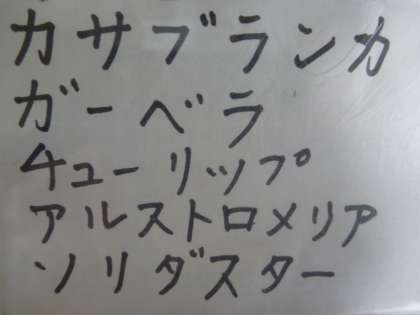 カサブランカ
ガーベラ
チューリップ
アルストロメリア
ソリダスター